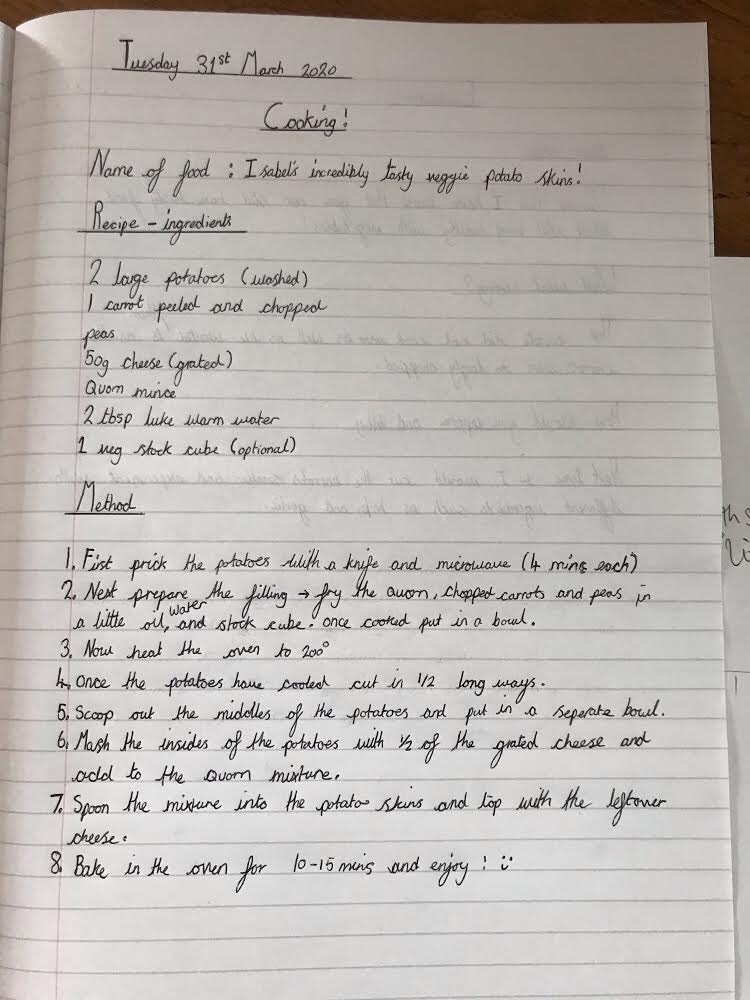 Tuesday 31st March 2020
Cooking!
Name of food : Isabel's incredibly tasty veggie potato skins!
Recipe - ingredients
2 large potatoes (washed)
1 carrot peeled and chopped
peas
50g cheese (grated)
Quorn mince
2 tbsp luke warm water
1 veg stock cube (optional)
Method
1. First prick the potatoes with a knife and microwave (4 mins each)
2. Next prepare the filling → fry the quorn, chopped carrots and peas in
a little oil, water and stock cube. once cooked put in a bowl.
3. Now heat the oven to 200°
4. Once the potatoes have cooled cut in 1/2 long ways.
5. Scoop out the middles of the potatoes and put in a seperate bowl.
6. Mash the insides of the potatoes with 1/2 of the grated cheese and
add to the quorn mixture.
7. Spoon the mixture into the potato skins and top with the leftover
cheese.
8. Bake in the oven for 10-15 mins and enjoy! :)